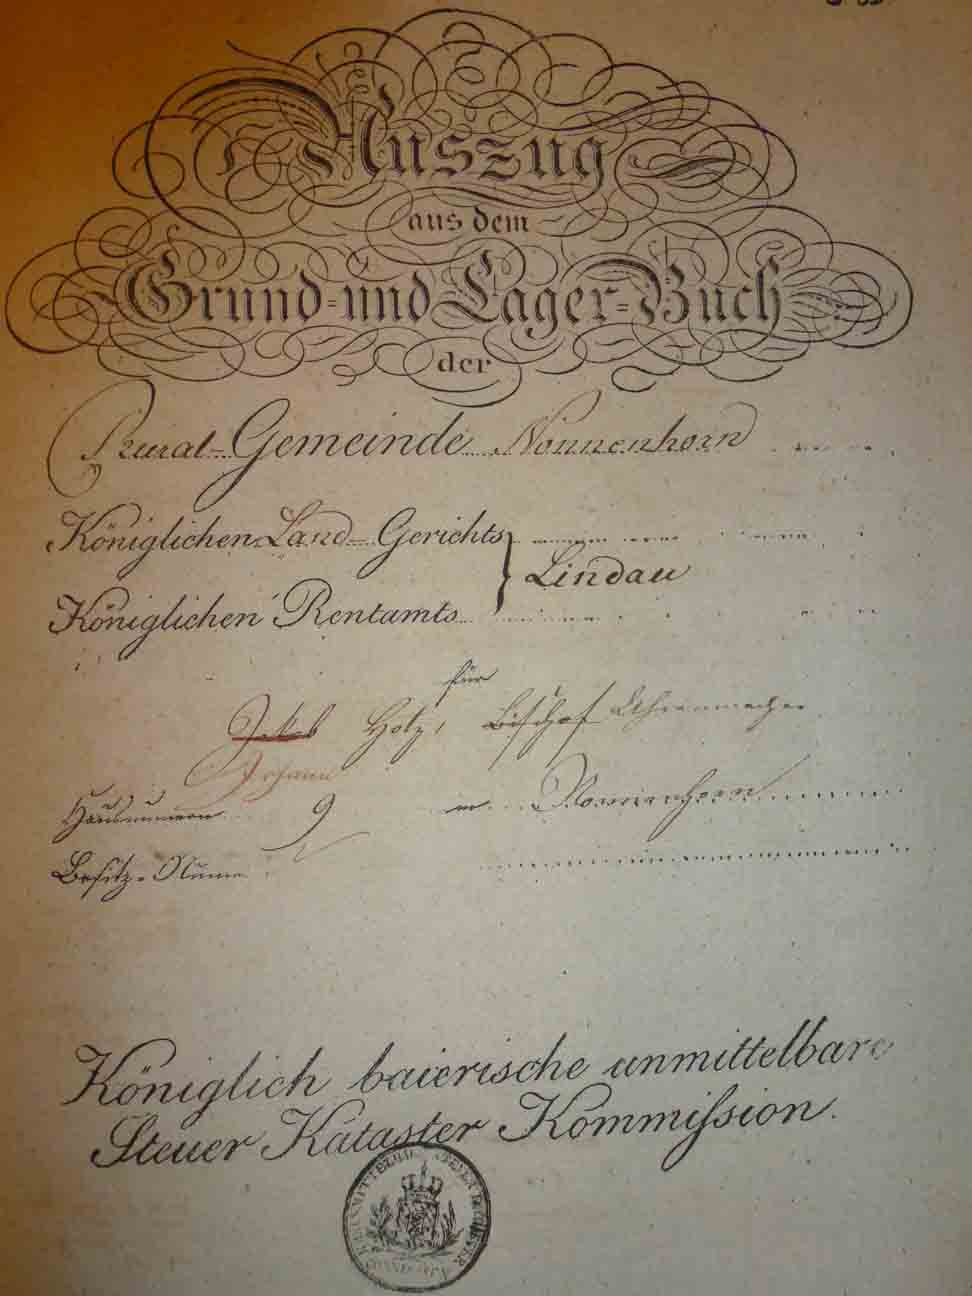 Auszug
aus dem
Grund-und Lager-Buch
der
Rural-Gemeinde Nonnenhorn
Königlichen Land-Gerichts
Lindau
Königlichen Rentamts
für
Jakob Hotz, Bischof Uhrenmacher
Johann
Hausnummern 9 in Nonnenhorn
Besitz-Numer
Königlich baierische unmittelbare
Steuer Kataster Kommißsion.